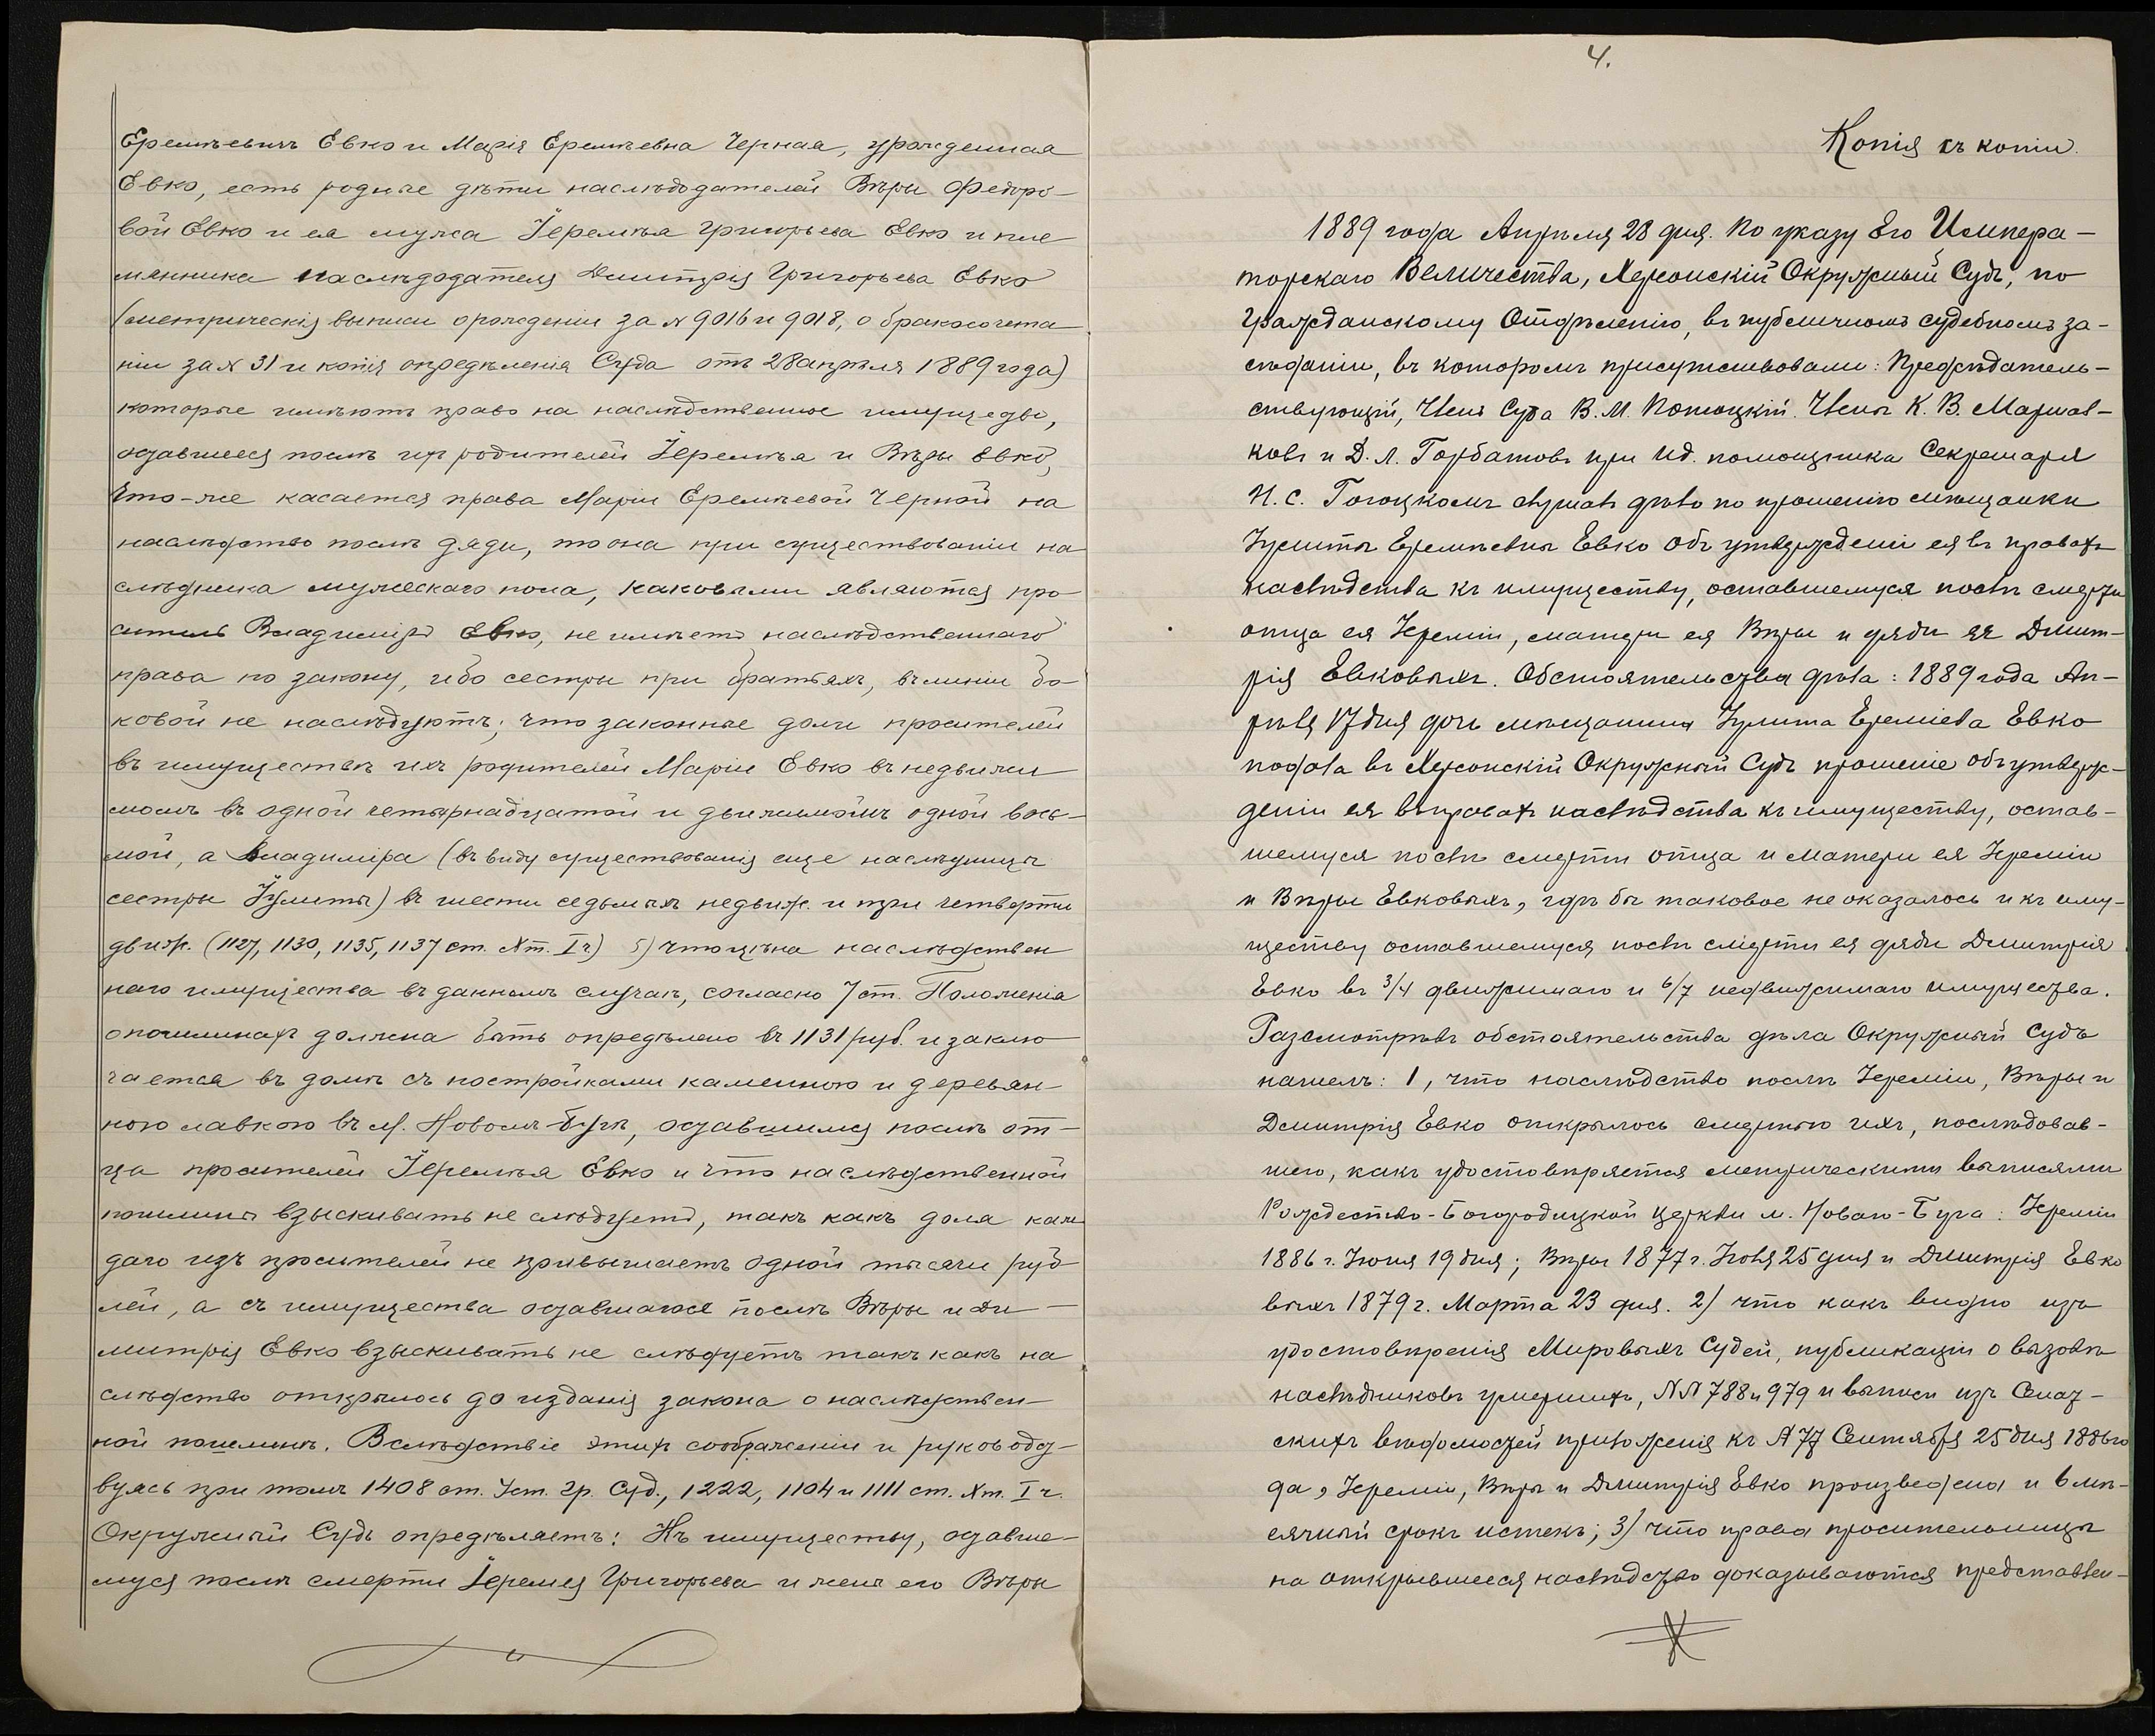 Еремѣевичъ Евко и Марія Еремѣевна Черная, урожденная
Евко, есть родные дѣти наслѣдодателей Вѣры Федоро-
вой Евко и ея мужа Іеремѣя Григорьева Евко и пле
мянника наслѣдодателя Дмитрія Григорьева Евко
(метрическія выписи о рожденіи за № 9016 и 9018, о бракосочета
ніи за № 31 и копія опредѣленія Суда отъ 28 апрѣля 1889 года)
которые имѣютъ право на наслѣдственное имущество,
оставшееся послѣ ихъ родителей Іеремѣя и Вѣры Евко,
Что-же касается права Маріи Еремѣевой Черной на
наслѣдство послѣ дяди, то она при существованіи на
слѣдника мужескаго пола, каковыми являются про
ситель Владиміръ Евко, не имѣетъ наслѣдственнаго
права по закону, ибо сестры при братьяхъ, въ линіи бо
ковой не наслѣдуютъ; что законные доли просителей
въ имуществѣ ихъ родителей Маріи Евко въ недвижи
момъ въ одной четырнадцатой и движимомъ одной вось-
мой, а Владиміра (въ виду существованія еще наслѣдницы
сестры Іулиты) въ шести седьмыхъ недвиж. и три четверти
движ. (1127, 1130, 1135, 1137 ст. Xт. I ч) 5) что цѣна наслѣдствен
наго имущества въ данномъ случаѣ, согласно 7 ст. Положенія
о пошлинахъ должна быть опредѣлено въ 1131 руб. и заклю
чается въ домѣ съ постройками каменною и деревян
ною лавкою въ м. Новомъ-Бугѣ, оставшимся послѣ от-
ца просителей Іеремѣя Евко и что наслѣдственной
пошлины взыскивать не слѣдуетъ, такъ какъ доля каж
даго изъ просителей не превышаетъ одной тысячи руб
лей, а съ имущества оставшагося послѣ Вѣры и Ди-
митрія Евко взыскивать не слѣдуетъ такъ какъ на
слѣдство открылось до изданія закона о наслѣдствен-
ной пошлинѣ. Вслѣдствіе этихъ соображеніи и руководст-
вуясь при томъ 1408 ст. Уст. Гр. Суд., 1222, 1104 и 1111 ст. Xт. I ч.
Окружный Судъ опредѣляетъ: Къ имуществу, оставше-
муся послѣ смерти Іеремея Григорьева и жены его Вѣры
4.
Копія съ копіи.
1889 года Апрѣля 28 дня. По указу Его Импера-
торскаго Величества, Херсонскій Окружный Судъ, по
Гражданскому Отдѣленію, въ публичномъ судебномъ за-
сѣданіи, въ которомъ присутствовали: Предсѣдатель-
ствующій, Членъ Суда В. М. Потоцкій. Члены К. В.
ковъ и Д. Л. Горбатовъ при и. д. помощника Секретаря
Н. С. Гогоцкомъ слушалъ дѣло по прошенію мѣщанки
Іулиты Еремѣевны Евко объ утвержденіи ея въ правахъ
наслѣдства къ имуществу, оставшемуся послѣ смерти
отца ея Іереміи, матери ея Вѣры и дяди ея Дмит-
рія Евковыхъ. Обстоятельства дѣла: 1889 года Ап-
рѣля 17 дня дочь мѣщанина Іулита Ереміева Евко
подала въ Херсонскій Окружный Судъ прошеніе объ утверж-
деніи ея въ правахъ наслѣдства къ имуществу, остав-
шемуся послѣ смерти отца и матери ея Іереміи
и Вѣры Евковыхъ, гдѣ бы таковое не оказалось и къ иму-
ществу оставшемуся послѣ смерти ея дяди Дмитрія
Евко въ 3/4 движимаго и 6/7 недвижимаго имущества.
Разсмотрѣвъ обстоятельства дѣла Окружный Судъ
нашелъ: 1, что наслѣдство послѣ Іереміи, Вѣры и
Дмитрія Евко открылось смертью ихъ, послѣдовав-
шею, какъ удостовѣряется метрическими выписями
Рождество-Богородицкой церкви м. Новаго-Буга: Іереміи
1886 г. Іюня 19 дня; Вѣры 1877 г. Іюля 25 дня и Дмитрія Евко
выхъ 1879 г. Марта 23 дня. 2) что какъ видно изъ
удостовѣренія Мировыхъ Судей, публикація о вызовѣ
наслѣдниковъ умершихъ, №№ 788 и 979 и выписи изъ Сенат-
скихъ вѣдомостей приложенія къ № 77 Сентября 25 дня 1886 го
да, Іереміи, Вѣры и Дмитрія Евко произведена и 6 мѣ-
сячный срокъ истекъ; 3) что права просительницы
на открывшееся наслѣдство доказываются представлен-